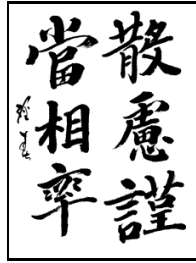 散慮謹
當相率